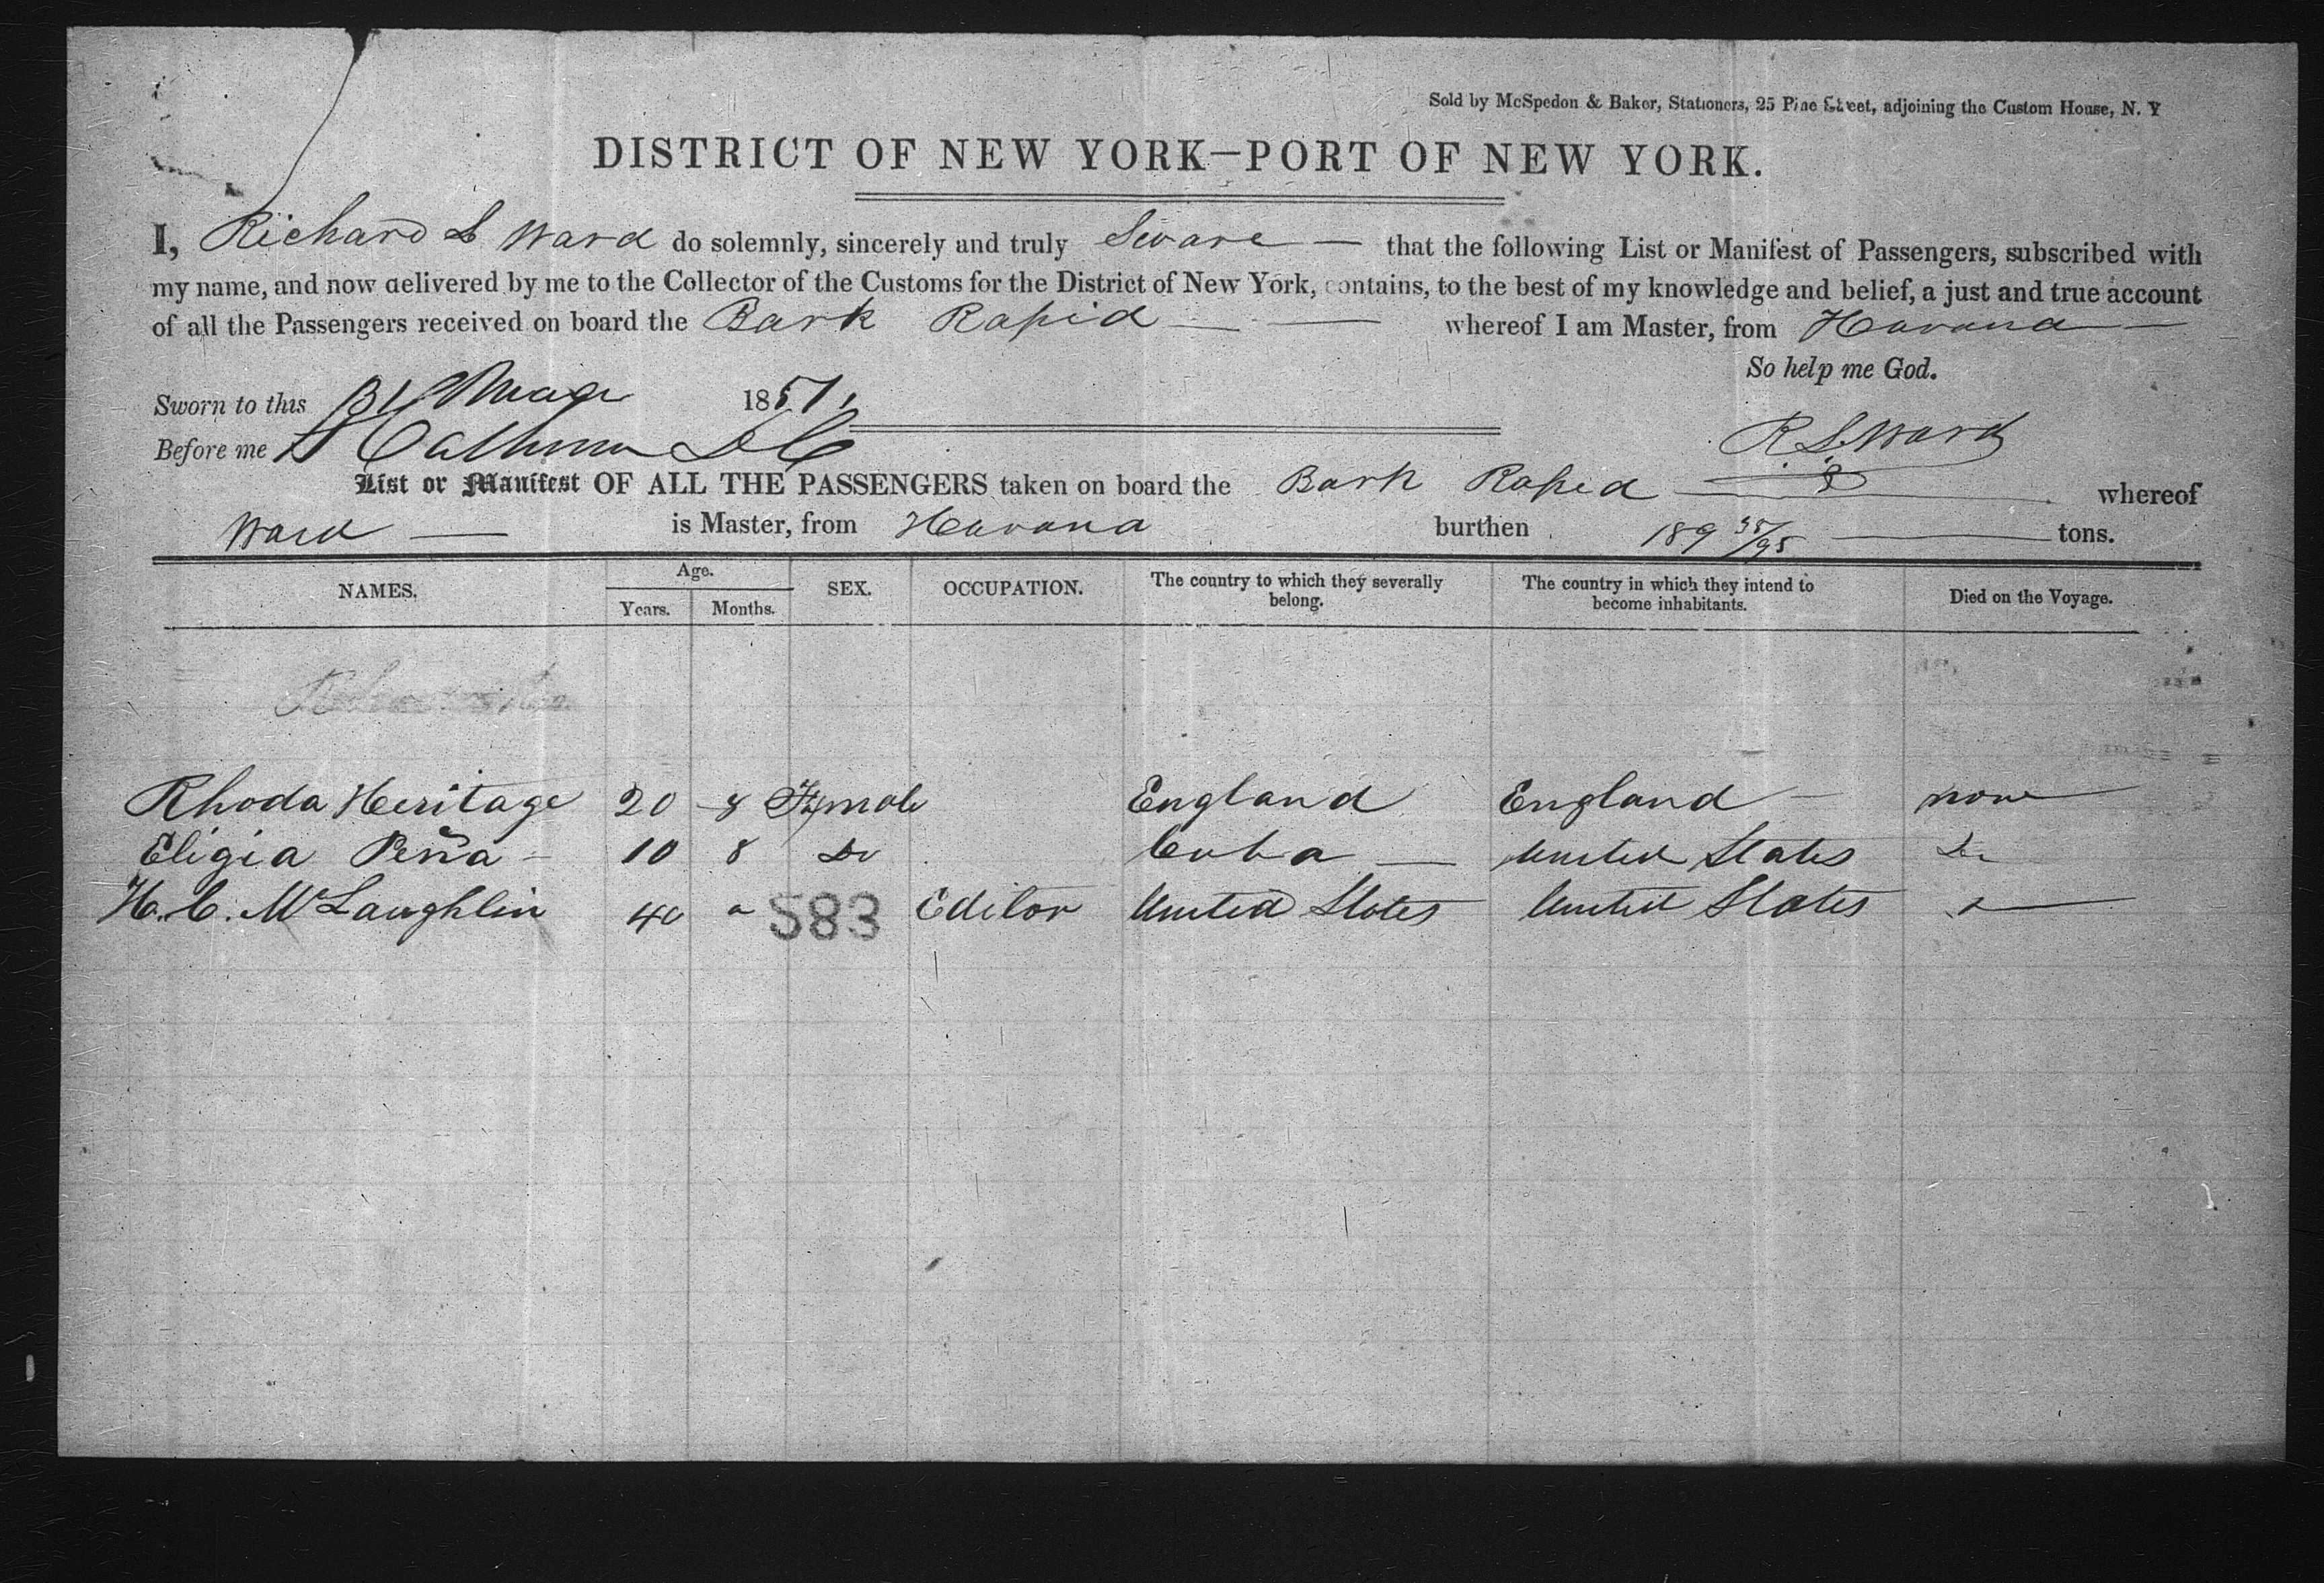 Sold by McSpedon & Baker, Stationers, 25 Pine Street, adjoining the Custom House, N. Y
DISTRICT OF NEW YORK—PORT OF NEW YORK.
I, Richard S Ward do solemnly, sincerely and truly Sware — that the following List or Manifest of Passengers, subscribed with
my name, and now delivered by me to the Collector of the Customs for the District of New York, contains, to the best of my knowledge and belief, a just and true account
of all the Passengers received on board the Bark Rapid — — whereof I am Master, from Havana —
So help me God.
Sworn to this 31 May 1851.
Before me Calhoun DC
R. S. Ward
List or Manifest OF ALL THE PASSENGERS taken on board the Bark Rapid — whereof
Ward — is Master, from Havana burthen 189 38/95 — tons.
NAMES. Age. SEX. OCCUPATION. The country to which they severally belong. The country in which they intend to become inhabitants. Died on the Voyage.
Years. Months.
Rhoda Heritage 20 - 8 Female England England — none
Eligia Peña - 10 8 Do Cuba — United States Do
H. C. McLaughlin 40 583 Editor United States United States